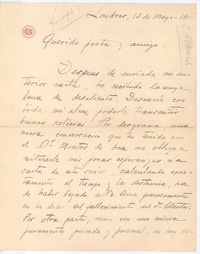 Londres, 13 de Mayo. 1901
Querido poeta y amigo:
Despues de enviada mi an-
terior carta, he recibido la suya,
llena de desaliento. Desearia con
toda mi alma poderle transmitir
buenas noticias. Por desgracia, una
nueva conversacion que he tenido con
el Dr. Montes de Oca me obliga a
reiterarle mis pocas esperanzas:
carta de este señor, calculando exac-
tamente el tiempo y la distancia, ha
de haber llegado a Ps. Aires precisamente
en los dias del fallecimiento del Dr. Alcorta.
Por otra parte, como era una misiva
puramente privada y personal, es muy